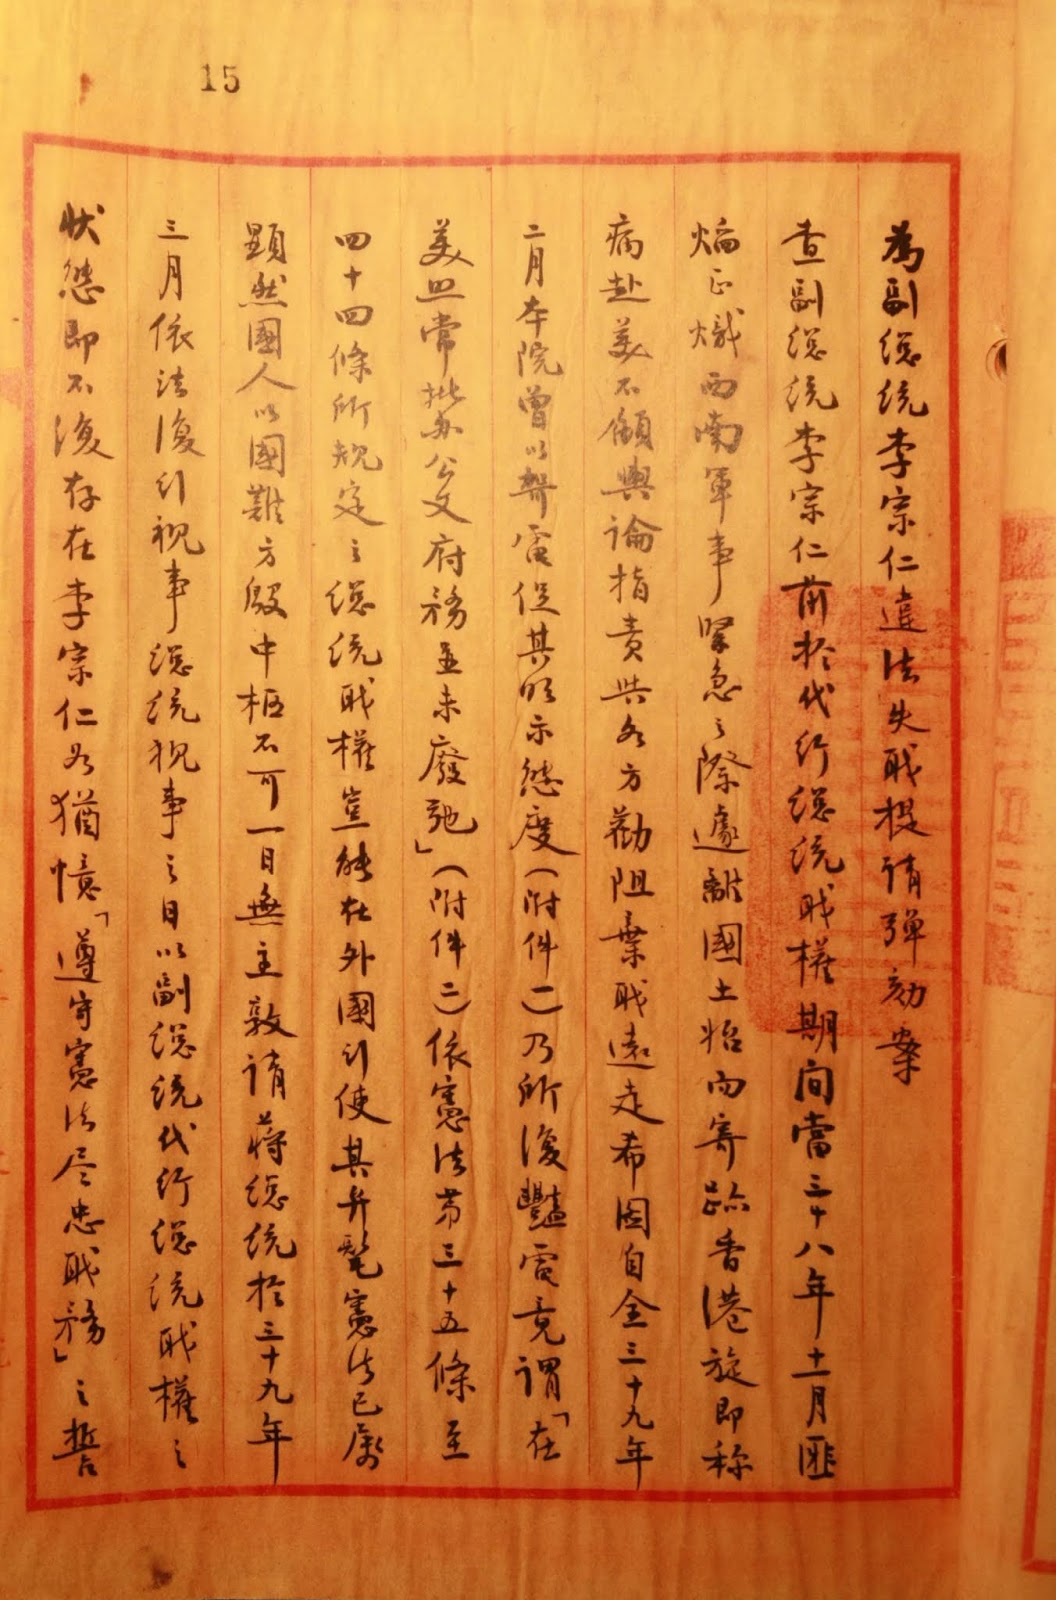 15
為副總統李宗仁違法失職提請彈劾案
查副總統李宗仁前於代行總統職權期間當三十八年十一月匪
焰正熾西南軍事緊急之際遽離國土始而寄跡香港旋即称
病赴美不顧輿論指責與各方勸阻棄職遠走希圖自全三十九年
二月本院曾以電促其明示態度(附件一)乃所復豔電竟謂「在
美照常批答公文府務並未廢弛」(附件二)依憲法第三十五條至
四十四條所規定之總統職權豈能在外國行使其弁髦憲法已屬
顯然國人以國難方殷中樞不可一日無主敦請蔣總統於三十九年
三月依法復行視事總統視事之日以副總統代行總統職權之
狀態即不復存在李宗仁如猶憶「遵守憲法尽忠職務」之誓